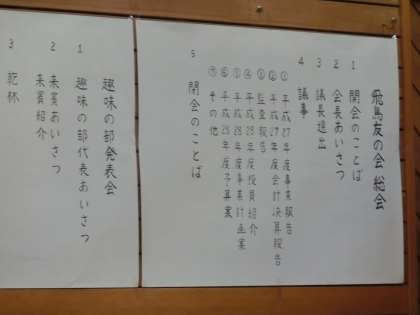 飛鳥友の会 総会
1 開会のことば
2 会長あいさつ
3 議長選出
4 議事
① 平成27年度事業報告
② 平成27年度会計決算報告
③ 監査報告
④ 平成28年度役員紹介
⑤ 平成28年度事業計画案
⑥ 平成28年度予算案
⑦ その他
5 閉会のことば
趣味の部発表会
1 趣味の部代表あいさつ
2 来賓あいさつ
来賓紹介
3 乾杯